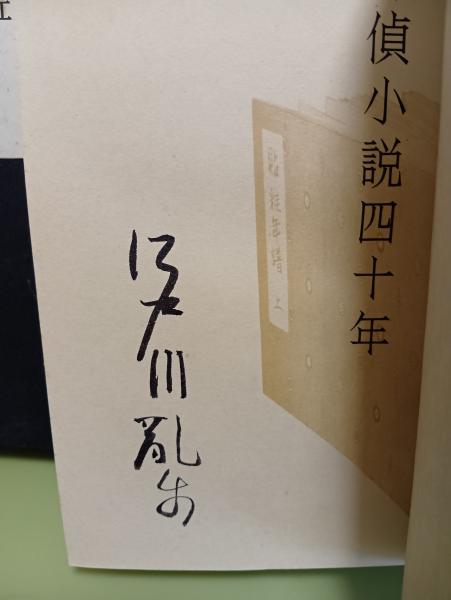 偵小説四十年
貼雑年譜 上
江戸川乱歩